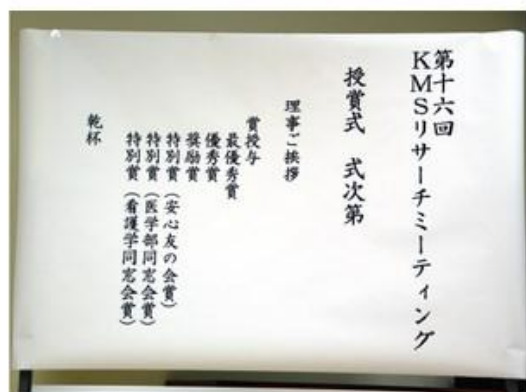 第十六回
KMSリサーチミーティング
授賞式　式次第
理事ご挨拶
賞授与
最優秀賞
優秀賞
奨励賞
特別賞（安心友の会賞）
特別賞（医学部同窓会賞）
特別賞（看護学同窓会賞）
乾杯